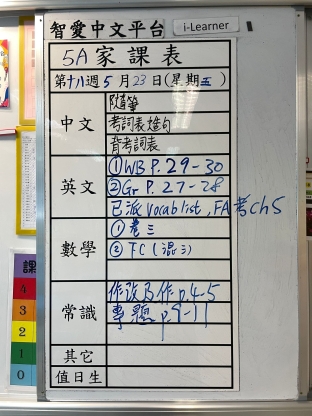 智愛中文平台
i-Learner
5A 家課表
第十八週 5月23日(星期五)
中文
隨筆
考詞表造句
背考詞表
英文
①WB P.29-30
②Gr P.27-28
已派 vocab list, FA考ch5
數學
① 卷三
② TC (混三)
常識
作改及作 p.4-5
專題 p.9-11
其它
值日生
課
4
3
2
1
0